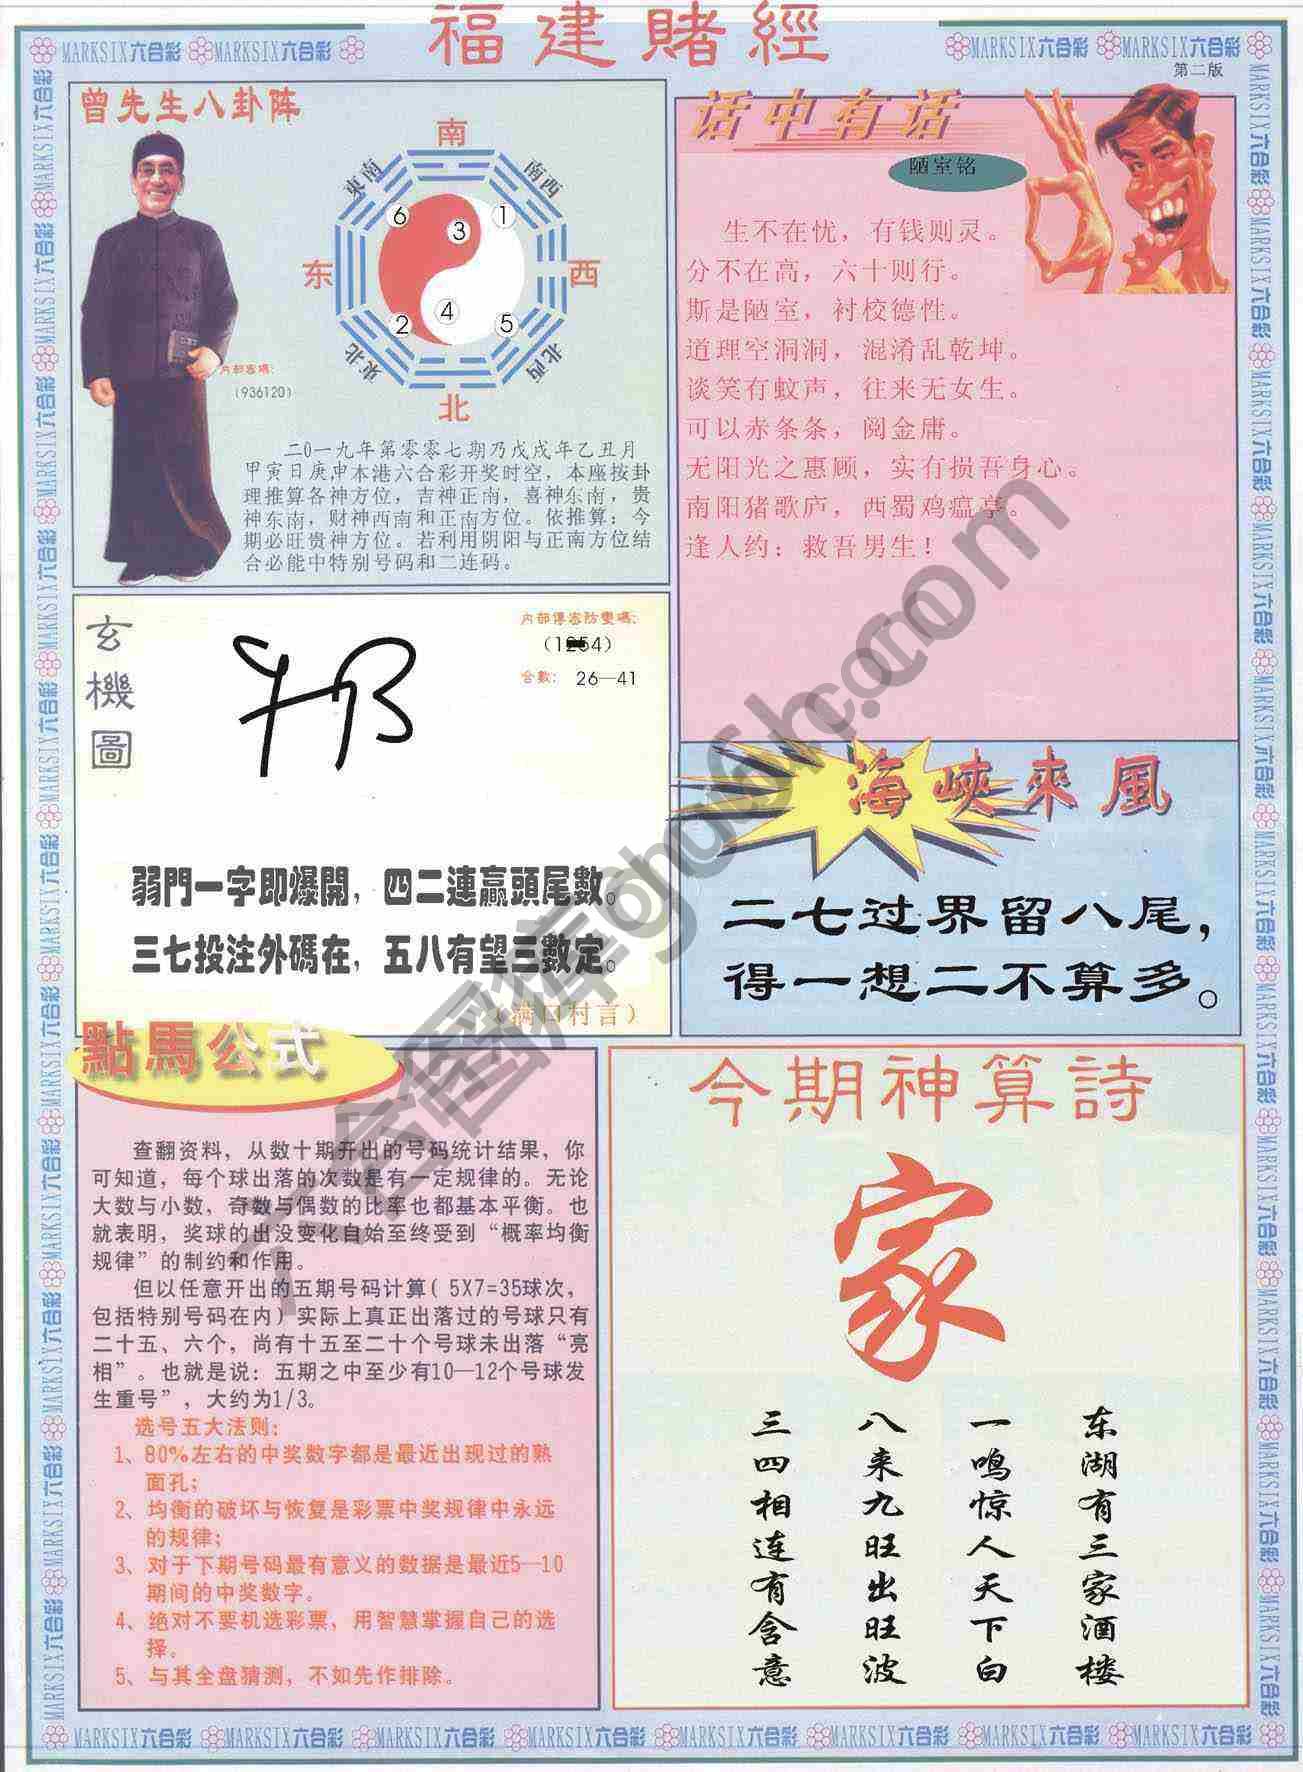 福建賭經
MARKSIX六合彩 MARKSIX六合彩
MARKSIX六合彩 MARKSIX六合彩
第二版
曾先生八卦阵
南
東南
南西
6
3
1
东
西
4
2
5
東北
北西
北
(936120)
二0一九年第零零七期乃戊戌年乙丑月
甲寅日庚申本港六合彩开奖时空，本座按卦
理推算各神方位，吉神正南，喜神东南，贵
神东南，财神西南和正南方位。依推算：今
期必旺贵神方位。若利用阴阳与正南方位结
合必能中特别号码和二连码。
话中有话
陋室铭
生不在忧，有钱则灵。
分不在高，六十则行。
斯是陋室，衬校德性。
道理空洞洞，混淆乱乾坤。
谈笑有蚊声，往来无女生。
可以赤条条，阅金庸。
无阳光之惠顾，实有损吾身心。
南阳猪歌庐，西蜀鸡瘟亭。
逢人约：救吾男生！
玄機圖
合數： 26—41
弱門一字即爆開，四二連贏頭尾數。
三七投注外碼在，五八有望三數定。
（满口村言）
海峽來風
二七过界留八尾，
得一想二不算多。
點馬公式
查翻资料，从数十期开出的号码统计结果，你
可知道，每个球出落的次数是有一定规律的。无论
大数与小数，奇数与偶数的比率也都基本平衡。也
就表明，奖球的出没变化自始至终受到“概率均衡
规律”的制约和作用。
但以任意开出的五期号码计算( 5X7=35球次，
包括特别号码在内)实际上真正出落过的号球只有
二十五、六个，尚有十五至二十个号球未出落“亮
相”。也就是说：五期之中至少有10—12个号球发
生重号”，大约为1/3。
选号五大法则：
1、80%左右的中奖数字都是最近出现过的熟
面孔；
2、均衡的破坏与恢复是彩票中奖规律中永远
的规律；
3、对于下期号码最有意义的数据是最近5—10
期间的中奖数字。
4、绝对不要机选彩票，用智慧掌握自己的选
择。
5、与其全盘猜测，不如先作排除。
今期神算詩
家
东湖有三家酒楼
一鸣惊人天下白
八来九旺出旺波
三四相连有含意
MARKSIX六合彩 MARKSIX六合彩 MARKSIX六合彩 MARKSIX六合彩 MARKSIX六合彩 MARKSIX六合彩 MARKSIX六合彩 MARKSIX六合彩